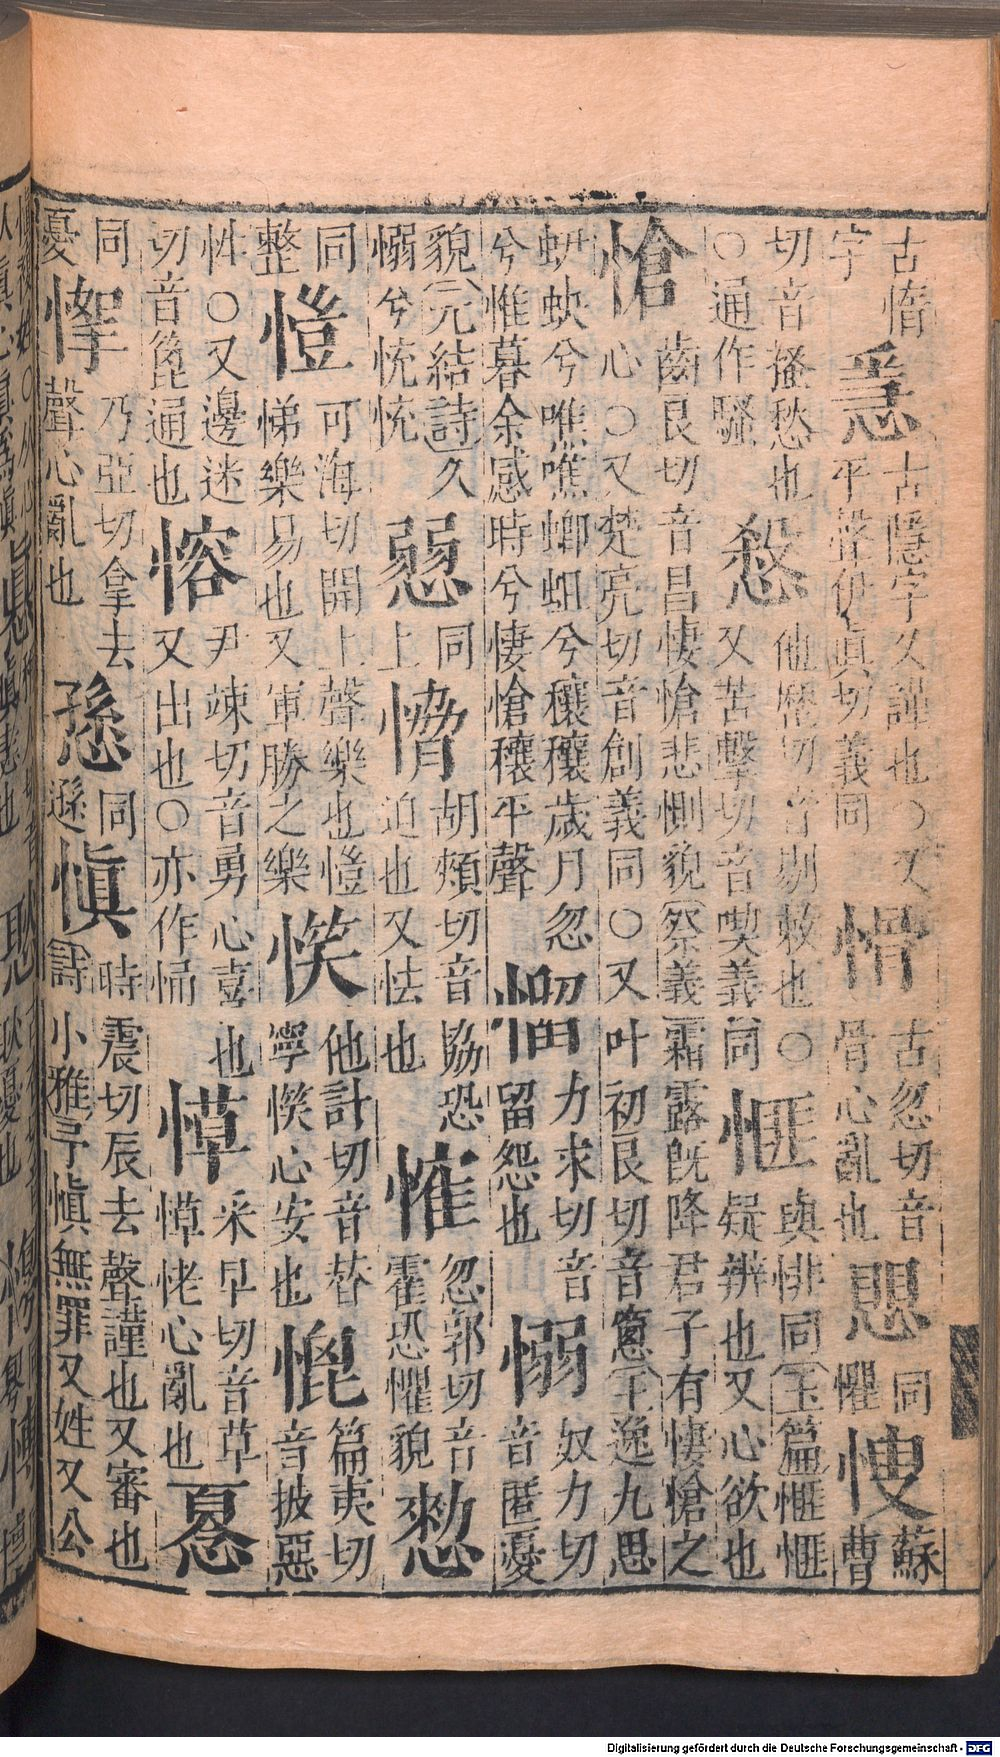 古惰
字
㥯
古隱字又謹也○又
平聲伊眞切義同
愲
古忽切音
骨心亂也
愳
同
懼
㥰
蘇
曹
切音搔愁也
○通作騷
他歷切音剔敕也○
又苦擊切音喫義同
㥱
與悱同玉篇㥱㥱
疑辨也又心欲也
愴
齒艮切音昌悽愴悲惻貌祭義霜露旣降君子有悽愴之
心○又楚亮切音創義同○又叶初艮切音窻王逸九思
蚈蚗兮噍噍蝍蛆兮穰穰歲月忽
兮惟暮余感時兮悽愴穰平聲
力求切音
留怨也
愵
奴力切
音匿憂
貌元結詩久
愵兮怳怳
同
上
愶
胡頰切音協恐
迫也又怯也
忽郭切音
霍恐懼貌
愸
同
整
愷
可海切開上聲樂也愷
悌樂易也又軍勝之樂
㥴
他計切音替
寧㥴心安也
篇夷切
音披惡
性○又邊迷
切音篦通也
愹
尹竦切音勇心喜也
又出也○亦作悀
愺
采早切音草
愺恅心亂也
同
憂
乃亞切拿去
聲心亂也
愻
同
遜
愼
時震切辰去聲謹也又審也
詩小雅予愼無罪又姓又公
Digitalisierung gefördert durch die Deutsche Forschungsgemeinschaft - DFG